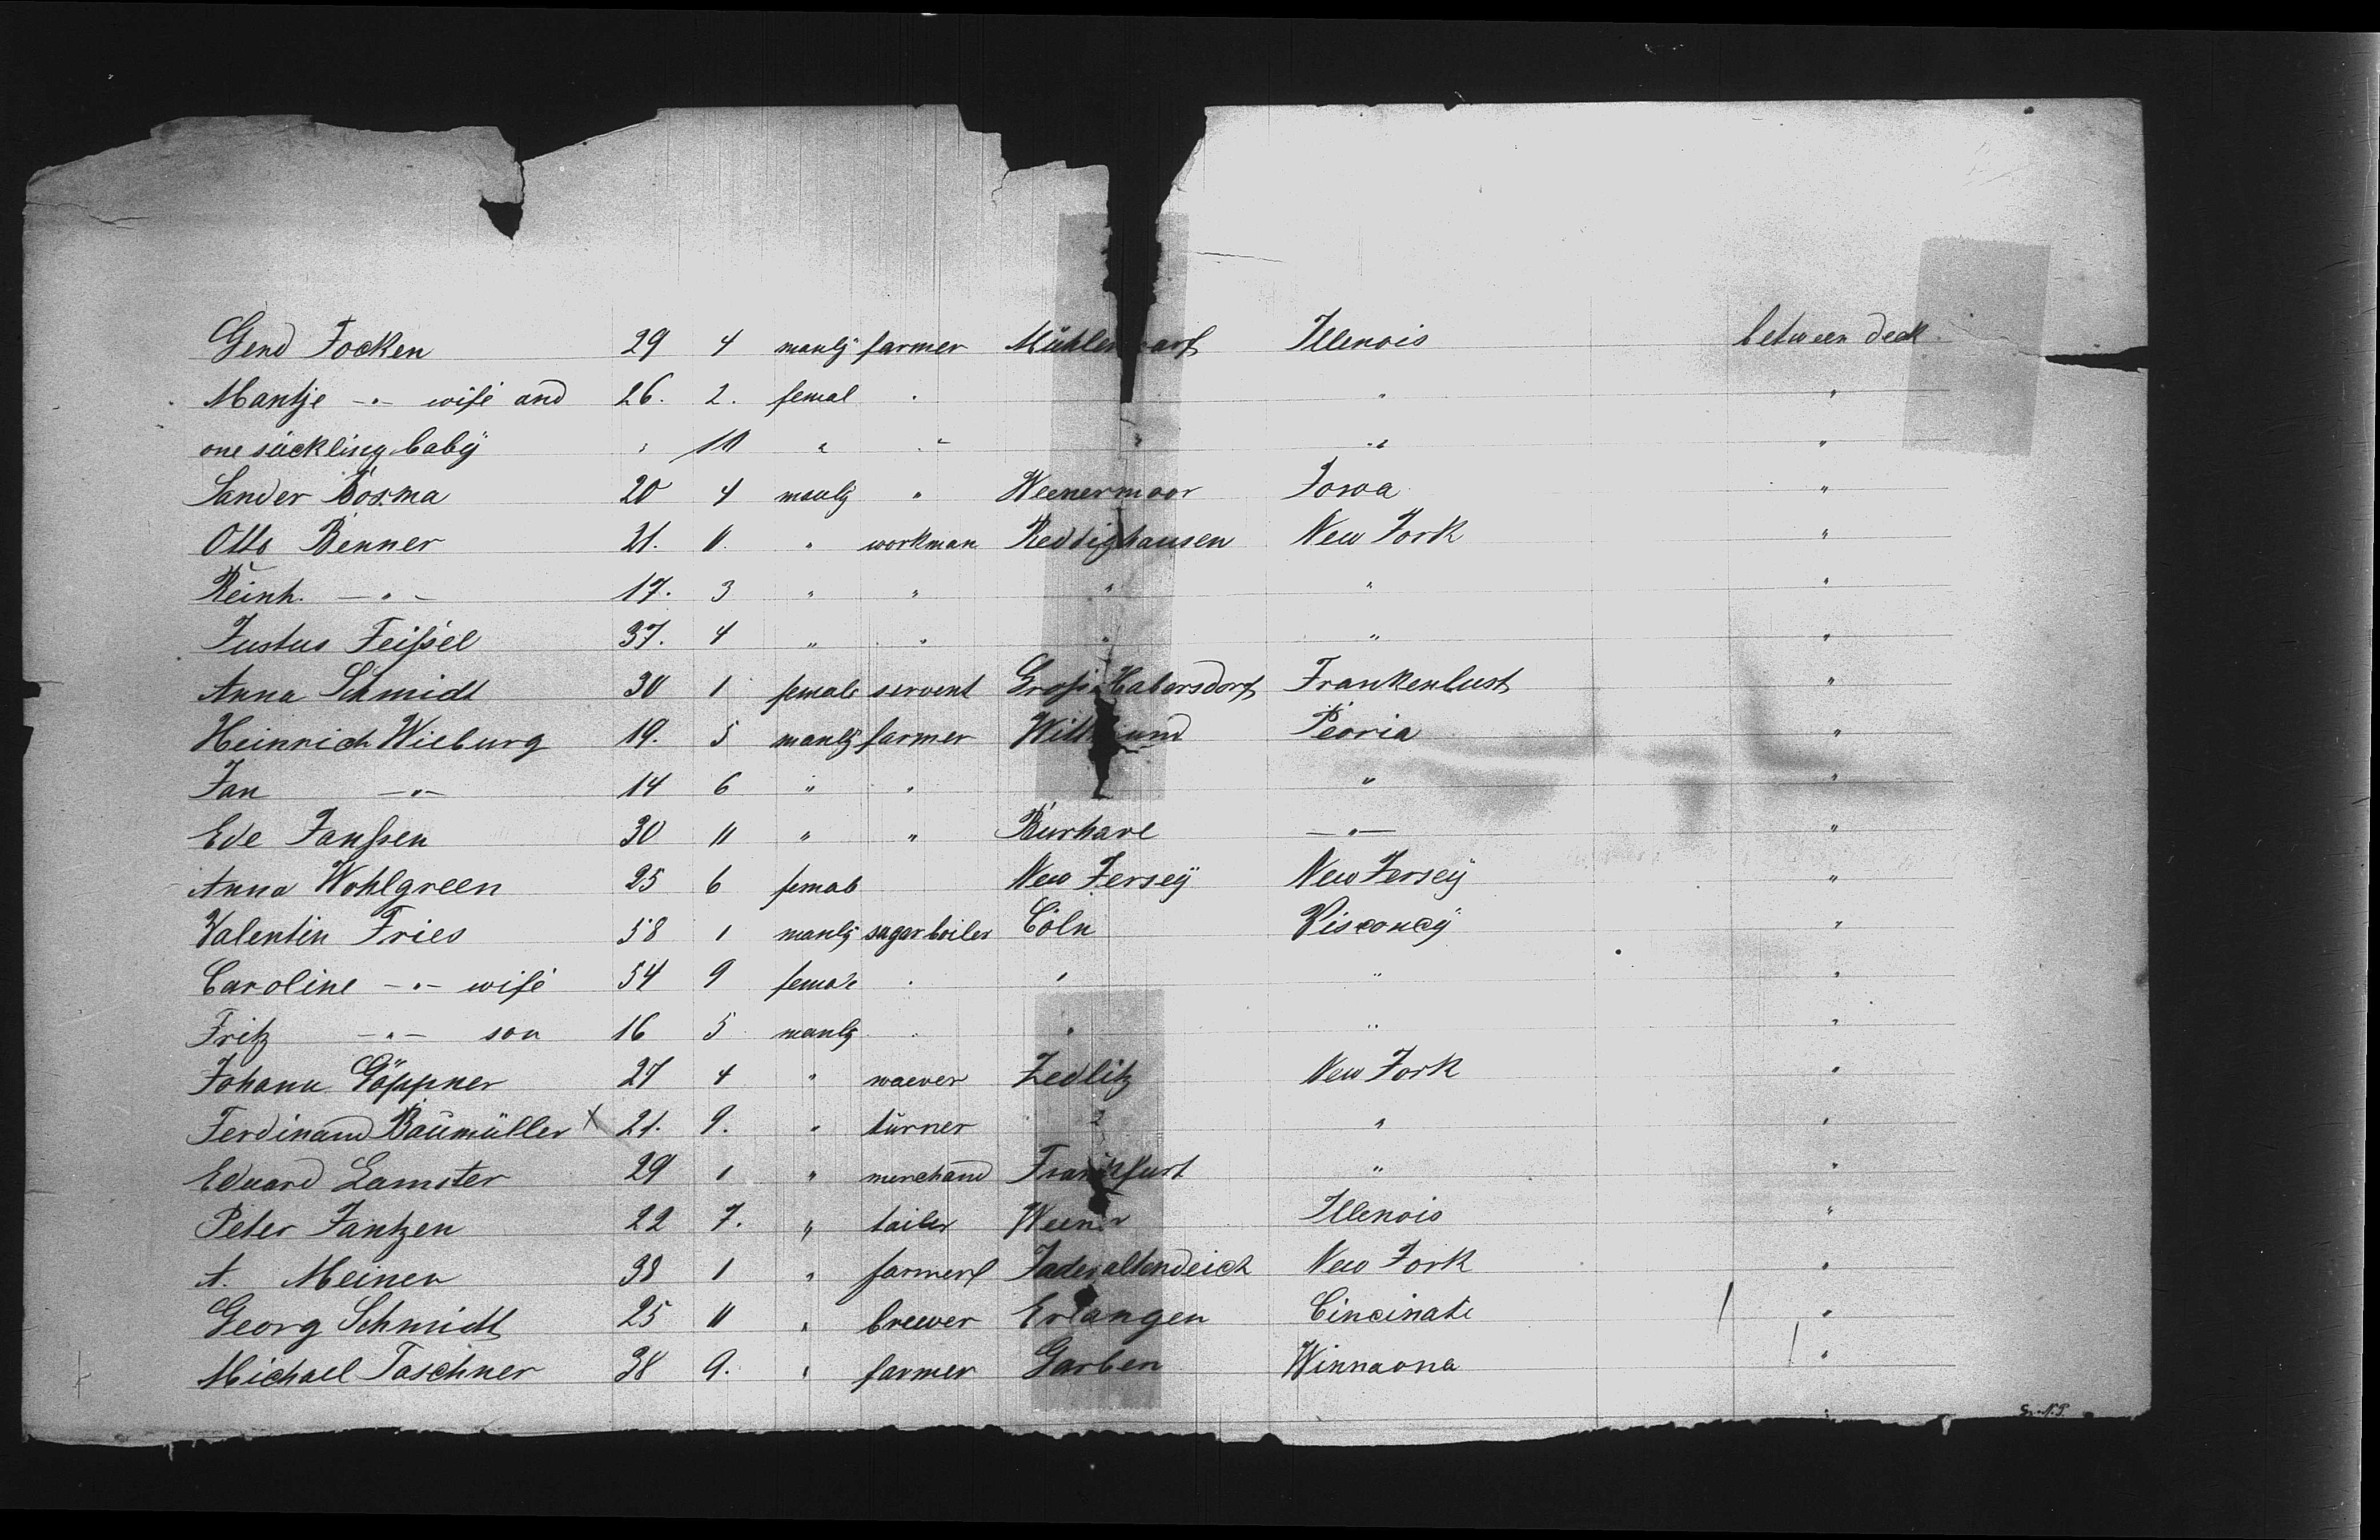 Gerd Focken 29 4 manly farmer Mühlenwarf Illenois between deck
Mantje -"- wife and 26. 2. femal " " "
one säckling baby " 10 " " " " "
Sander Bosma 20 4 manly " Weenermoor Iowa "
Otto Benner 21. 11. " workman Reddighausen New York "
Reinh. -"- 17. 3 " " " " "
Justus Feißel 37. 4 " " " " "
Anna Schmidt 30 1 female servent Groß Habersdorf Frankenlust "
Heinrich Wieburg 19. 5 manly farmer Wittmund Peoria "
Jan -"- 14 6 " " " "
Ede Janßen 30 11 " " Burhave -"- "
Anna Wohlgreen 25 6 femal New Jersey New Jersey "
Valentin Fries 58 1 manly sugar boiler Cöln Visconcy "
Caroline -"- wife 54 9 female " " "
Fritz -"- son 16 5 manly " " "
Johann Göppner 27 4 " waever Zedlitz New York "
Ferdinand Baumüller X 21. 9. " turner " " "
Eduard Lamster 29 1 " merchand Frankfurt " "
Peter Jantzen 22 7. " tailer Weener Illenois "
A. Meinen 38 1 " farmer Jaderaltendeich New York "
Georg Schmidt 25 11 " brewer Erlangen Cincinati "
Michael Taschner 38 9. " farmer Garben Winnaona "